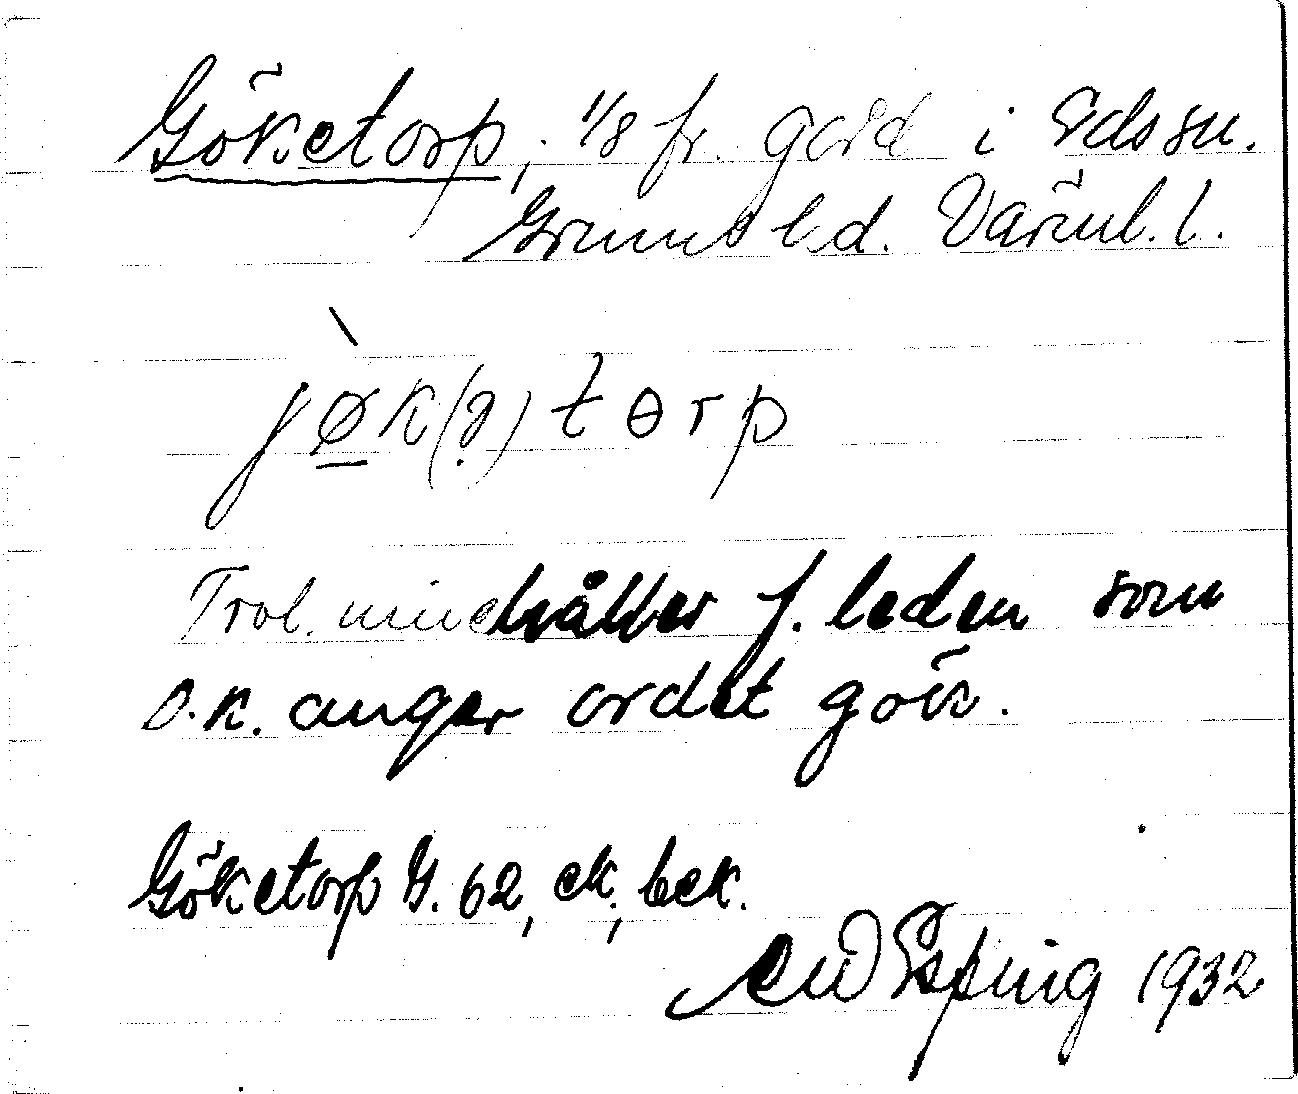 Göketorp, 1/8 fr. gård i Edssu.
Grums hd. Värml. l.
jøk(ə)torp
Trol. innehåller f. leden som
o.k. anger ordet gök.
Göketorp G. 62, ek, bek.
Esping 1932